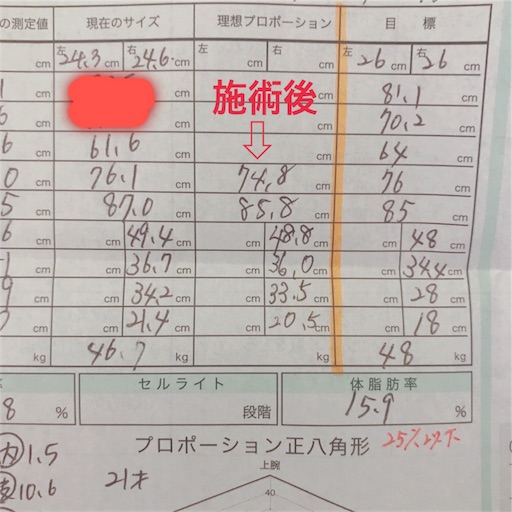 の測定値 現在のサイズ 理想プロポーション 目標
cm 左 24.3 cm 右 24.6 cm 左 cm 右 cm 左 26 cm 右 26 cm
cm cm 施術後 81.1 cm
cm cm 70.2 cm
6 cm 61.6 cm cm 64 cm
0 cm 76.1 cm 74.8 cm 76 cm
5 cm 87.0 cm 85.8 cm 85 cm
6 cm cm 49.4 cm cm 48.8 cm cm 48 cm
cm cm 36.7 cm cm 36.0 cm cm 34.4 cm
cm cm 34.2 cm cm 33.5 cm cm 28 cm
cm cm 21.4 cm cm 20.5 cm cm 18 cm
kg 46.7 kg kg 48 kg
セルライト 体脂肪率
8 % 段階 15.9 %
プロポーション正八角形 25%以下
内 1.5
10.6 21才
上腕
40